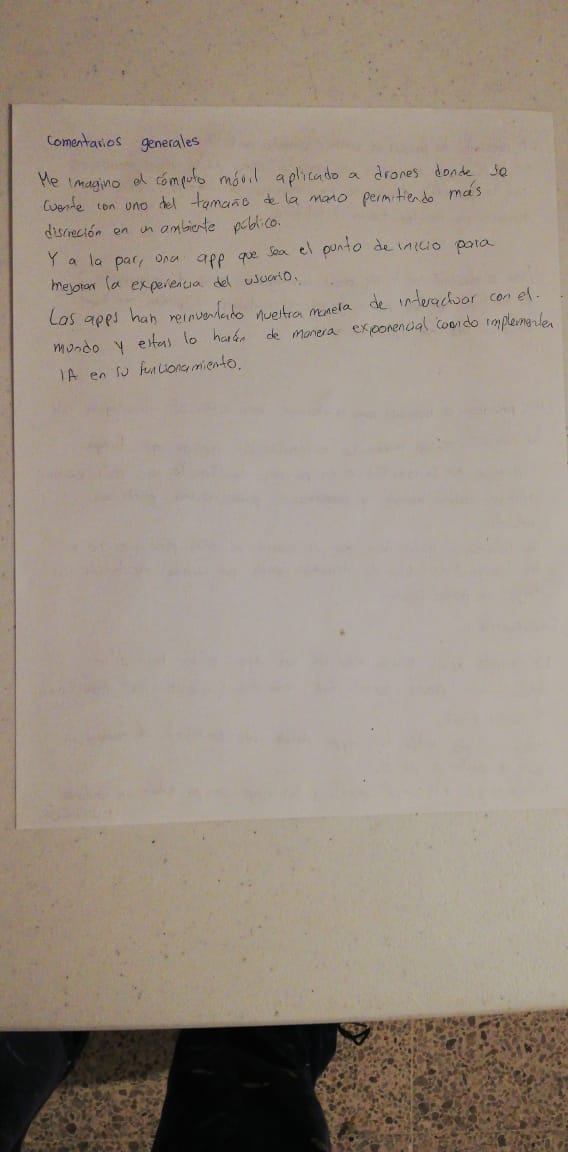 Comentarios generales
Me imagino el cómputo móvil aplicado a drones donde se
cuente con uno del tamaño de la mano permitiendo más
discreción en un ambiente público.
Y a la par, una app que sea el punto de inicio para
mejorar la experiencia del usuario.
Las apps han reinventado nuestra manera de interactuar con el.
mundo y estas lo harán de manera exponencial cuando implementen
IA en su funcionamiento.